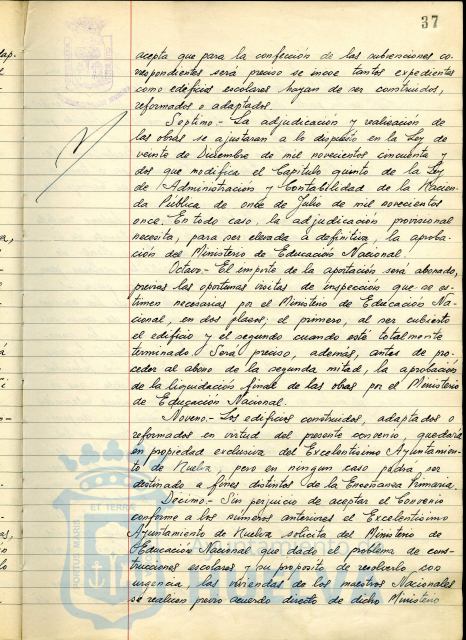 37
acepta que para la confección de las subvenciones co-
rrespondientes será preciso se incoe tantos expedientes
como edificios escolares hayan de ser construidos,
reformados o adaptados.
Septimo.- La adjudicación y realización de
las obras se ajustaran a lo dispuesto en la Ley de
veinte de Diciembre de mil novecientos cincuenta y
dos que modifica el Capitulo quinto de la Ley
de Administración y Contabilidad de la Hacien-
da Pública de once de Julio de mil novecientos
once. En todo caso, la adjudicación provisional
necesita, para ser elevada a definitiva, la aproba-
ción del Ministerio de Educación Nacional.
Octavo.- El importe de la aportación será abonado,
previas las oportunas visitas de inspección que se es-
timen necesarias por el Ministerio de Educación Na-
cional, en dos plazos; el primero, al ser cubierto
el edificio y el segundo cuando esté totalmente
terminado. Será preciso, además, antes de pro-
ceder al abono de la segunda mitad, la aprobación
de la liquidación final de las obras por el Ministerio
de Educación Nacional.
Noveno.- Los edificios construidos, adaptados o
reformados en virtud del presente convenio, quedará
en propiedad exclusiva del Excelentisimo Ayuntamien-
to de Huelva, pero en ningun caso podra ser
destinado a fines distintos de la Enseñanza Primaria.
Decimo.- Sin perjuicio de aceptar el Convenio
conforme a los números anteriores el Excelentisimo
Ayuntamiento de Huelva solicita del Ministerio de
Educación Nacional que dado el problema de cons-
trucciones escolares y su proposito de resolverlo con
urgencia las viviendas de los maestros Nacionales
se realicen previo acuerdo directo de dicho Ministerio
PORTUS MARIS ET TERRAE